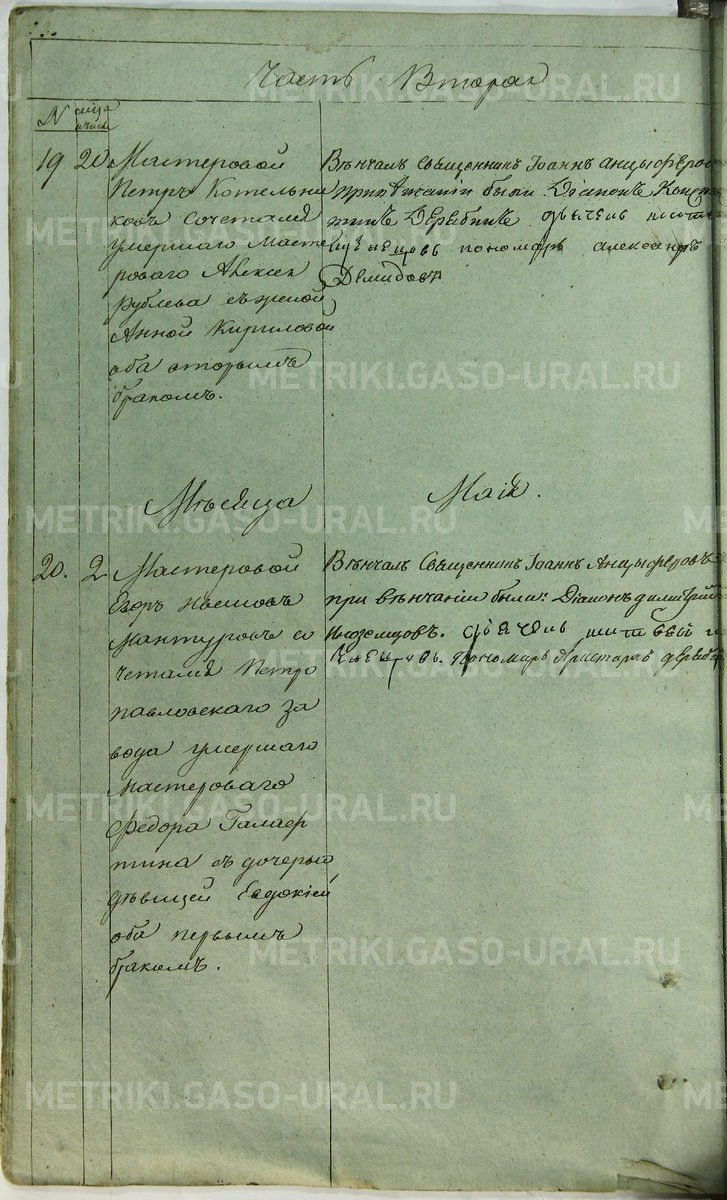 Часть Вторая
N
м͠ца
и числа
19 20 Мастеровой
Петръ Котельни
ковъ сочетался
умершаго Масте
роваго Алексея
Рублева съ женой
Анной Кириловой
оба вторымъ
бракомъ.
Вѣнчалъ Священникъ Іоаннъ Анцыферов
При вѣнчаніи были Діаконъ
Дерябинъ
пономарь александръ
Демидовъ
Мѣсяца Маія.
20. 2 Мастеровой
Егоръ
Мантуровъ со
четался Петро
павловскаго за
вода умершаго
мастероваго
Федора
съ дочерью
дѣвицей Евдокіей
оба первымъ
бракомъ.
Вѣнчалъ Священникъ Іоаннъ Анцыферовъ
при вѣнчаніи были: Діаконъ Димитрій
Иноземцовъ.
Пономарь Аристархъ
METRIKI.GASO-URAL.RU